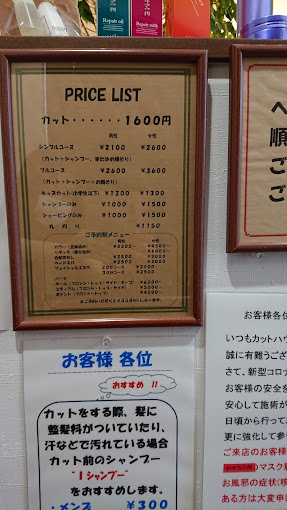 Repair oil
Repair milk
PRICE LIST
カット・・・・・・1600円
男性 女性
シンプルコース ¥2100 ¥2600
(カット+シャンプー、または
フルコース ¥2600 ¥3600
(カット+シャンプー+
キッズカット(小学生以下) ¥1200 ¥1300
シャンプーのみ ¥1000 ¥1500
シェービングのみ ¥1000 ¥1500
丸刈り ¥1150
ご予約制メニュー
男性 女性
カラー
白髪染め
ヘッドスパ
フェイシャルエステ 20分コース
30分コース
パーマ
お客様 各位
おすすめ!!
カットをする際、髪に
整髪料がついていたり、
汗などで汚れている場合
カット前のシャンプー
"1シャンプー"
をおすすめします。
・メンズ ¥300
ヘ
順
ご
ご
お客様各位
いつもカットハウ
誠に有難うござい
さて、新型コロナ
お客様の安全を
安心して施術が
日頃から行って
更に強化して参
ご来店のお客様
マスク
お風邪の症状(咳
ある方は大変申